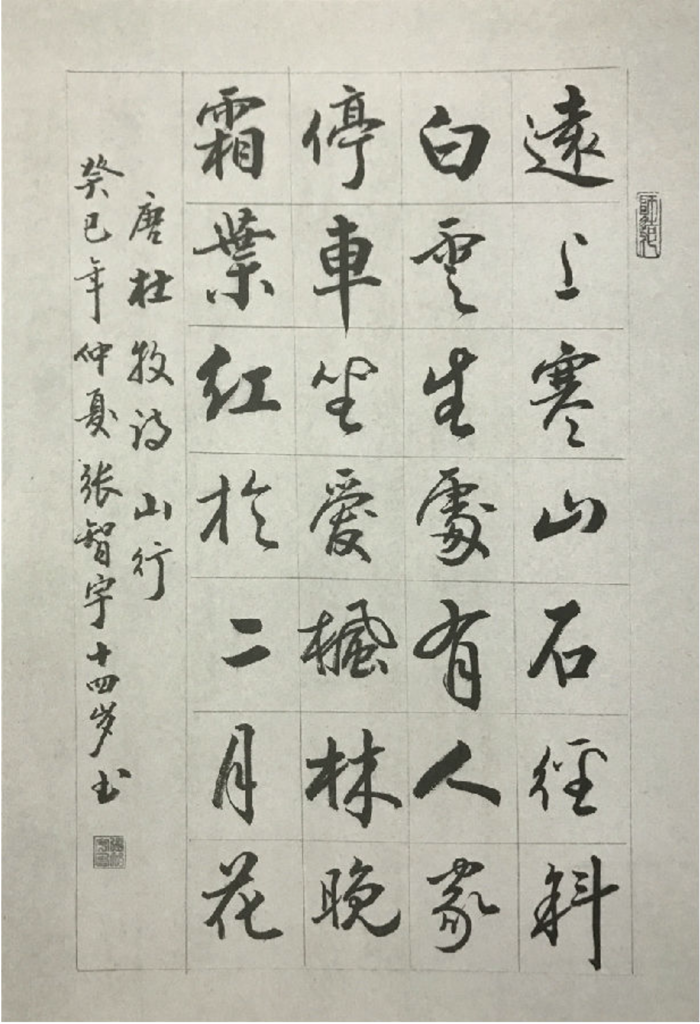 遠上寒山石徑斜
白雲生處有人家
停車坐愛楓林晚
霜葉紅於二月花
唐杜牧诗山行
癸巳年仲夏張智宇十四岁书